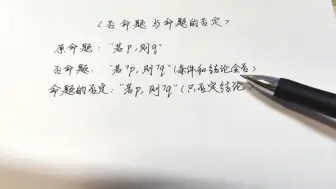 〈否命题与命题的否定〉
原命题："若p,则q"
否命题："若?p,则?q"(条件和结论全否)
命题的否定："若p,则?q"(只否定结论)